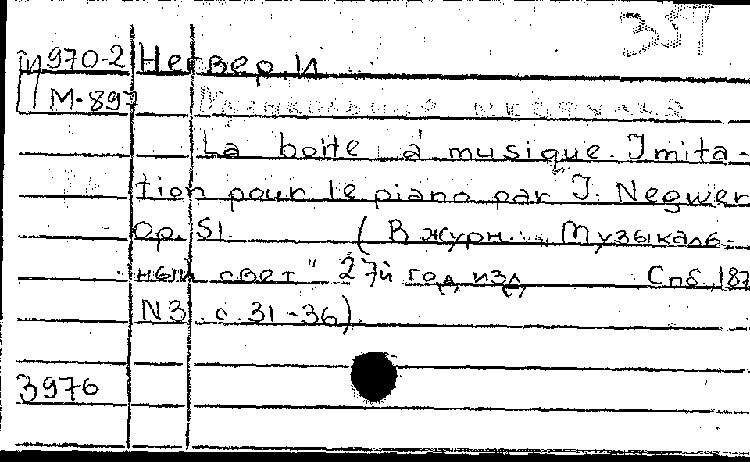 337
И970-2 Негвер, И
М-897 Музыкальная шкатулка
La boite à musique. Imita-
tion pour le piano par J. Negwer
Op. 51 (В журн. "Музыкаль-
ный свет" 27й год изд Спб, 187
N3 с. 31-36).
3976